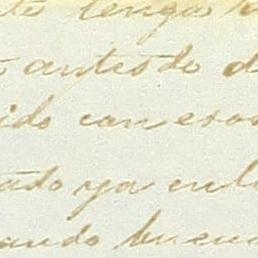 te tengo
antes de d
ido con esos
ado ya en l
ando buen